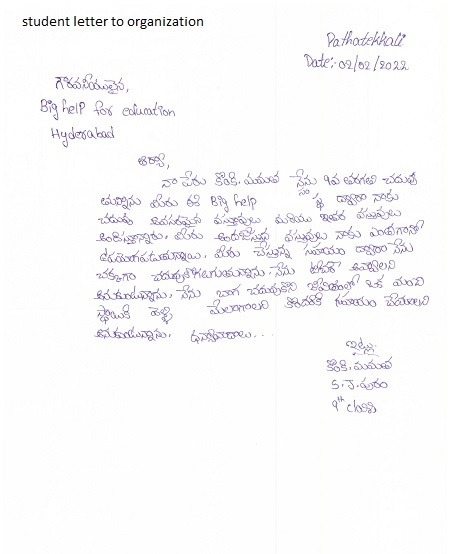 student letter to organization
Pathatekkali
Date:- 02/02/2022
గౌరవనీయులైన,
Big help for education
Hyderabad
ఆర్యా,
నా పేరు కొంకి. మమత నేను 9వ తరగతి చదువు
తున్నాను మీరు ఈ Big help సంస్థ ద్వారా నాకు
చదువు అవసరమైన వస్తువులు మరియు ఇతర వస్తువులు
అందిస్తున్నారు. మీరు అందజేస్తున్న వస్తువులు నాకు ఎంతగానో
ఉపయోగపడుతున్నాయి. మీరు చేస్తున్న సహాయం ద్వారా నేను
చక్కగా చదువుకోగలుగుతున్నాను. నేను టీచర్ అవ్వాలని
అనుకుంటున్నాను. నేను బాగా చదువుకొని జీవితంలో ఒక మంచి
స్థాయికి వెళ్ళి మెలగాలని కొందరికి సహాయం చేయాలని
అనుకుంటున్నాను. ధన్యవాదాలు...
ఇట్లు
కొంకి. మమత
S. J. పురం
9th class